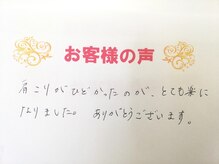 お客様の声
肩こりがひどかったのが、とても楽に
なりました。 ありがとうございます。